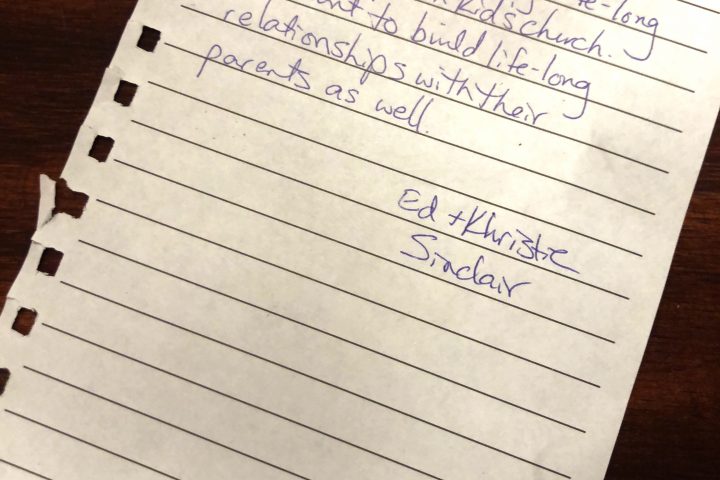 e-long
kids church.
to build life-long
relationships with their
parents as well.
Ed + Khristie
Sinclair